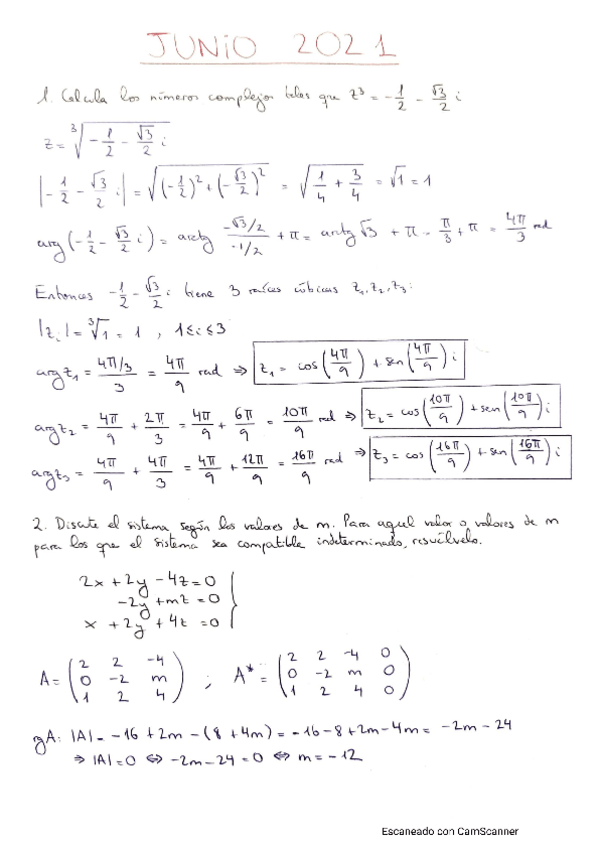 JUNIO 2021
1. Calcula los números complejos tales que z³ = -1/2 - √3/2 i
z = ³√(-1/2 - √3/2 i)
|-1/2 - √3/2 i| = √((-1/2)² + (-√3/2)²) = √(1/4 + 3/4) = √1 = 1
arg(-1/2 - √3/2 i) = arctg (-√3/2)/(-1/2) + π = arctg √3 + π = π/3 + π = 4π/3 rad
Entonces -1/2 - √3/2 i tiene 3 raíces cúbicas z₁, z₂, z₃:
|zᵢ| = ³√1 = 1 , 1≤i≤3
arg z₁ = (4π/3)/3 = 4π/9 rad ⇒ z₁ = cos(4π/9) + sen(4π/9) i
arg z₂ = 4π/9 + 2π/3 = 4π/9 + 6π/9 = 10π/9 rad ⇒ z₂ = cos(10π/9) + sen(10π/9) i
arg z₃ = 4π/9 + 4π/3 = 4π/9 + 12π/9 = 16π/9 rad ⇒ z₃ = cos(16π/9) + sen(16π/9) i
2. Discute el sistema según los valores de m. Para aquel valor o valores de m
para los que el sistema sea compatible indeterminado, resuélvelo.
2x + 2y - 4z = 0
-2y + mz = 0
x + 2y + 4z = 0
A = (2 2 -4; 0 -2 m; 1 2 4) ; A* = (2 2 -4 0; 0 -2 m 0; 1 2 4 0)
rgA: |A| = -16 + 2m - (8 + 4m) = -16 - 8 + 2m - 4m = -2m - 24
⇒ |A| = 0 ⇔ -2m - 24 = 0 ⇔ m = -12
Escaneado con CamScanner